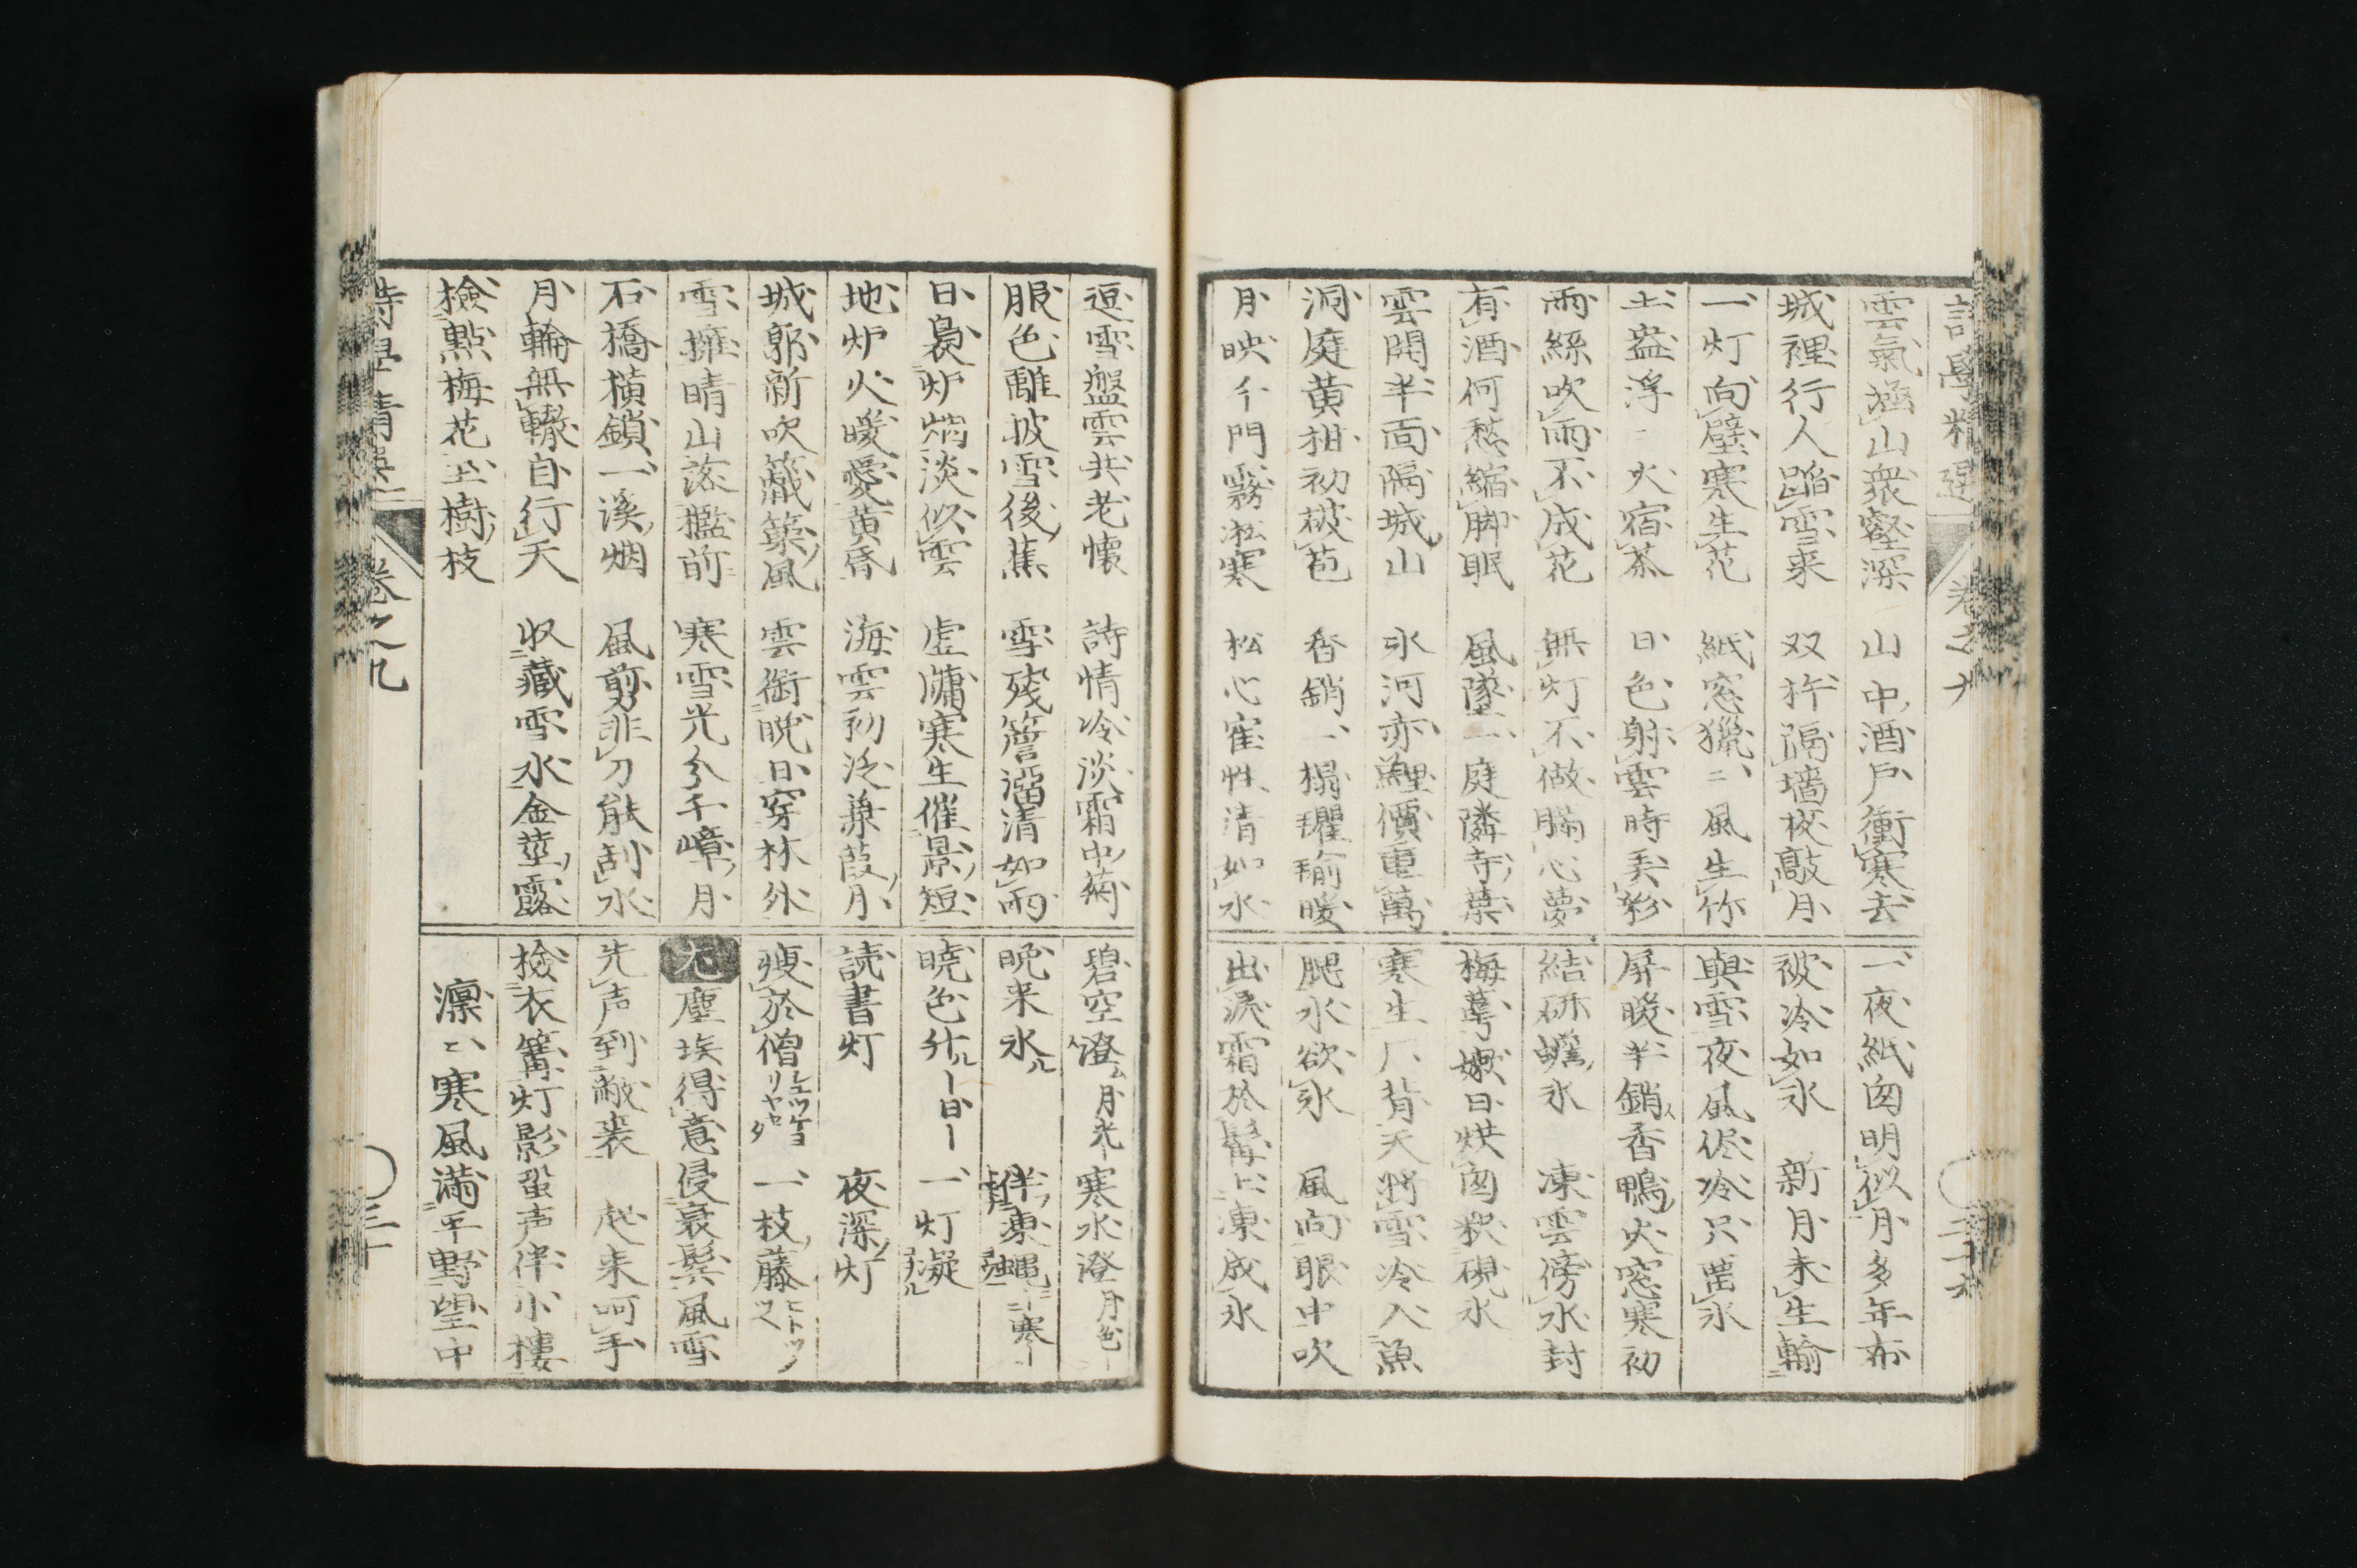 雲氣極山衆壑深 山中酒戶衝寒去
城裡行人蹈雪来 双杵隔墻夜敲月
一灯向壁寒生花 紙窓獵〻風生竹
土盎浮〻火宿茶 日色射雲時弄彩
雨絲吹雨不成花 無灯不做腦心夢
有酒何愁縮脚眠 風墜一庭隣寺葉
雲開半面隔城山 氷河亦鯉價重萬
洞庭黄柑初破苞 香銷一榻氍毹暖
月映千門霧凇寒 松心寉性清如水
一夜紙囱明似月多年布
被冷如氷 新月未生輪
與雪夜風侭冷只留氷
屏暖半銷香鴨火窓寒初
結研蟾氷 凍雲傍水封
梅萼嫩日烘囱釈硯氷
寒生厂背天將雪冷入魚
腮水欲氷 風向眼中吹
出淚霜於髯上凍成氷
逗雪盤雲共老懷 詩情冷淡霜中菊
服色離披雪後蕉 雪残簷溜清如雨
日裊炉烟淡似雲 虚牖寒生催景短
地炉火暖愛黄昏 海雲初泛蒹葭月
城郭新吹觱篥風 雲衔晩日穿林外
雪擁晴山落檻前 寒雪光分千嶂月
石橋横鎖一溪烟 風剪非刀能刮水
月輪無轍自行天 収藏雪水金莖露
檢點梅花玉樹枝
碧空澄月光 寒水澄月色
晩来氷ル 半凍蠅 寒
暁色升ル 日 一灯凝
読書灯 夜深灯
瘦於僧 一枝藤
尤 塵埃得意侵衰鬢風雪
先声到敝裘 起来呵手
檢衣篝灯影蛩声伴小樓
凛〻寒風満平野望中
卷之九
三十